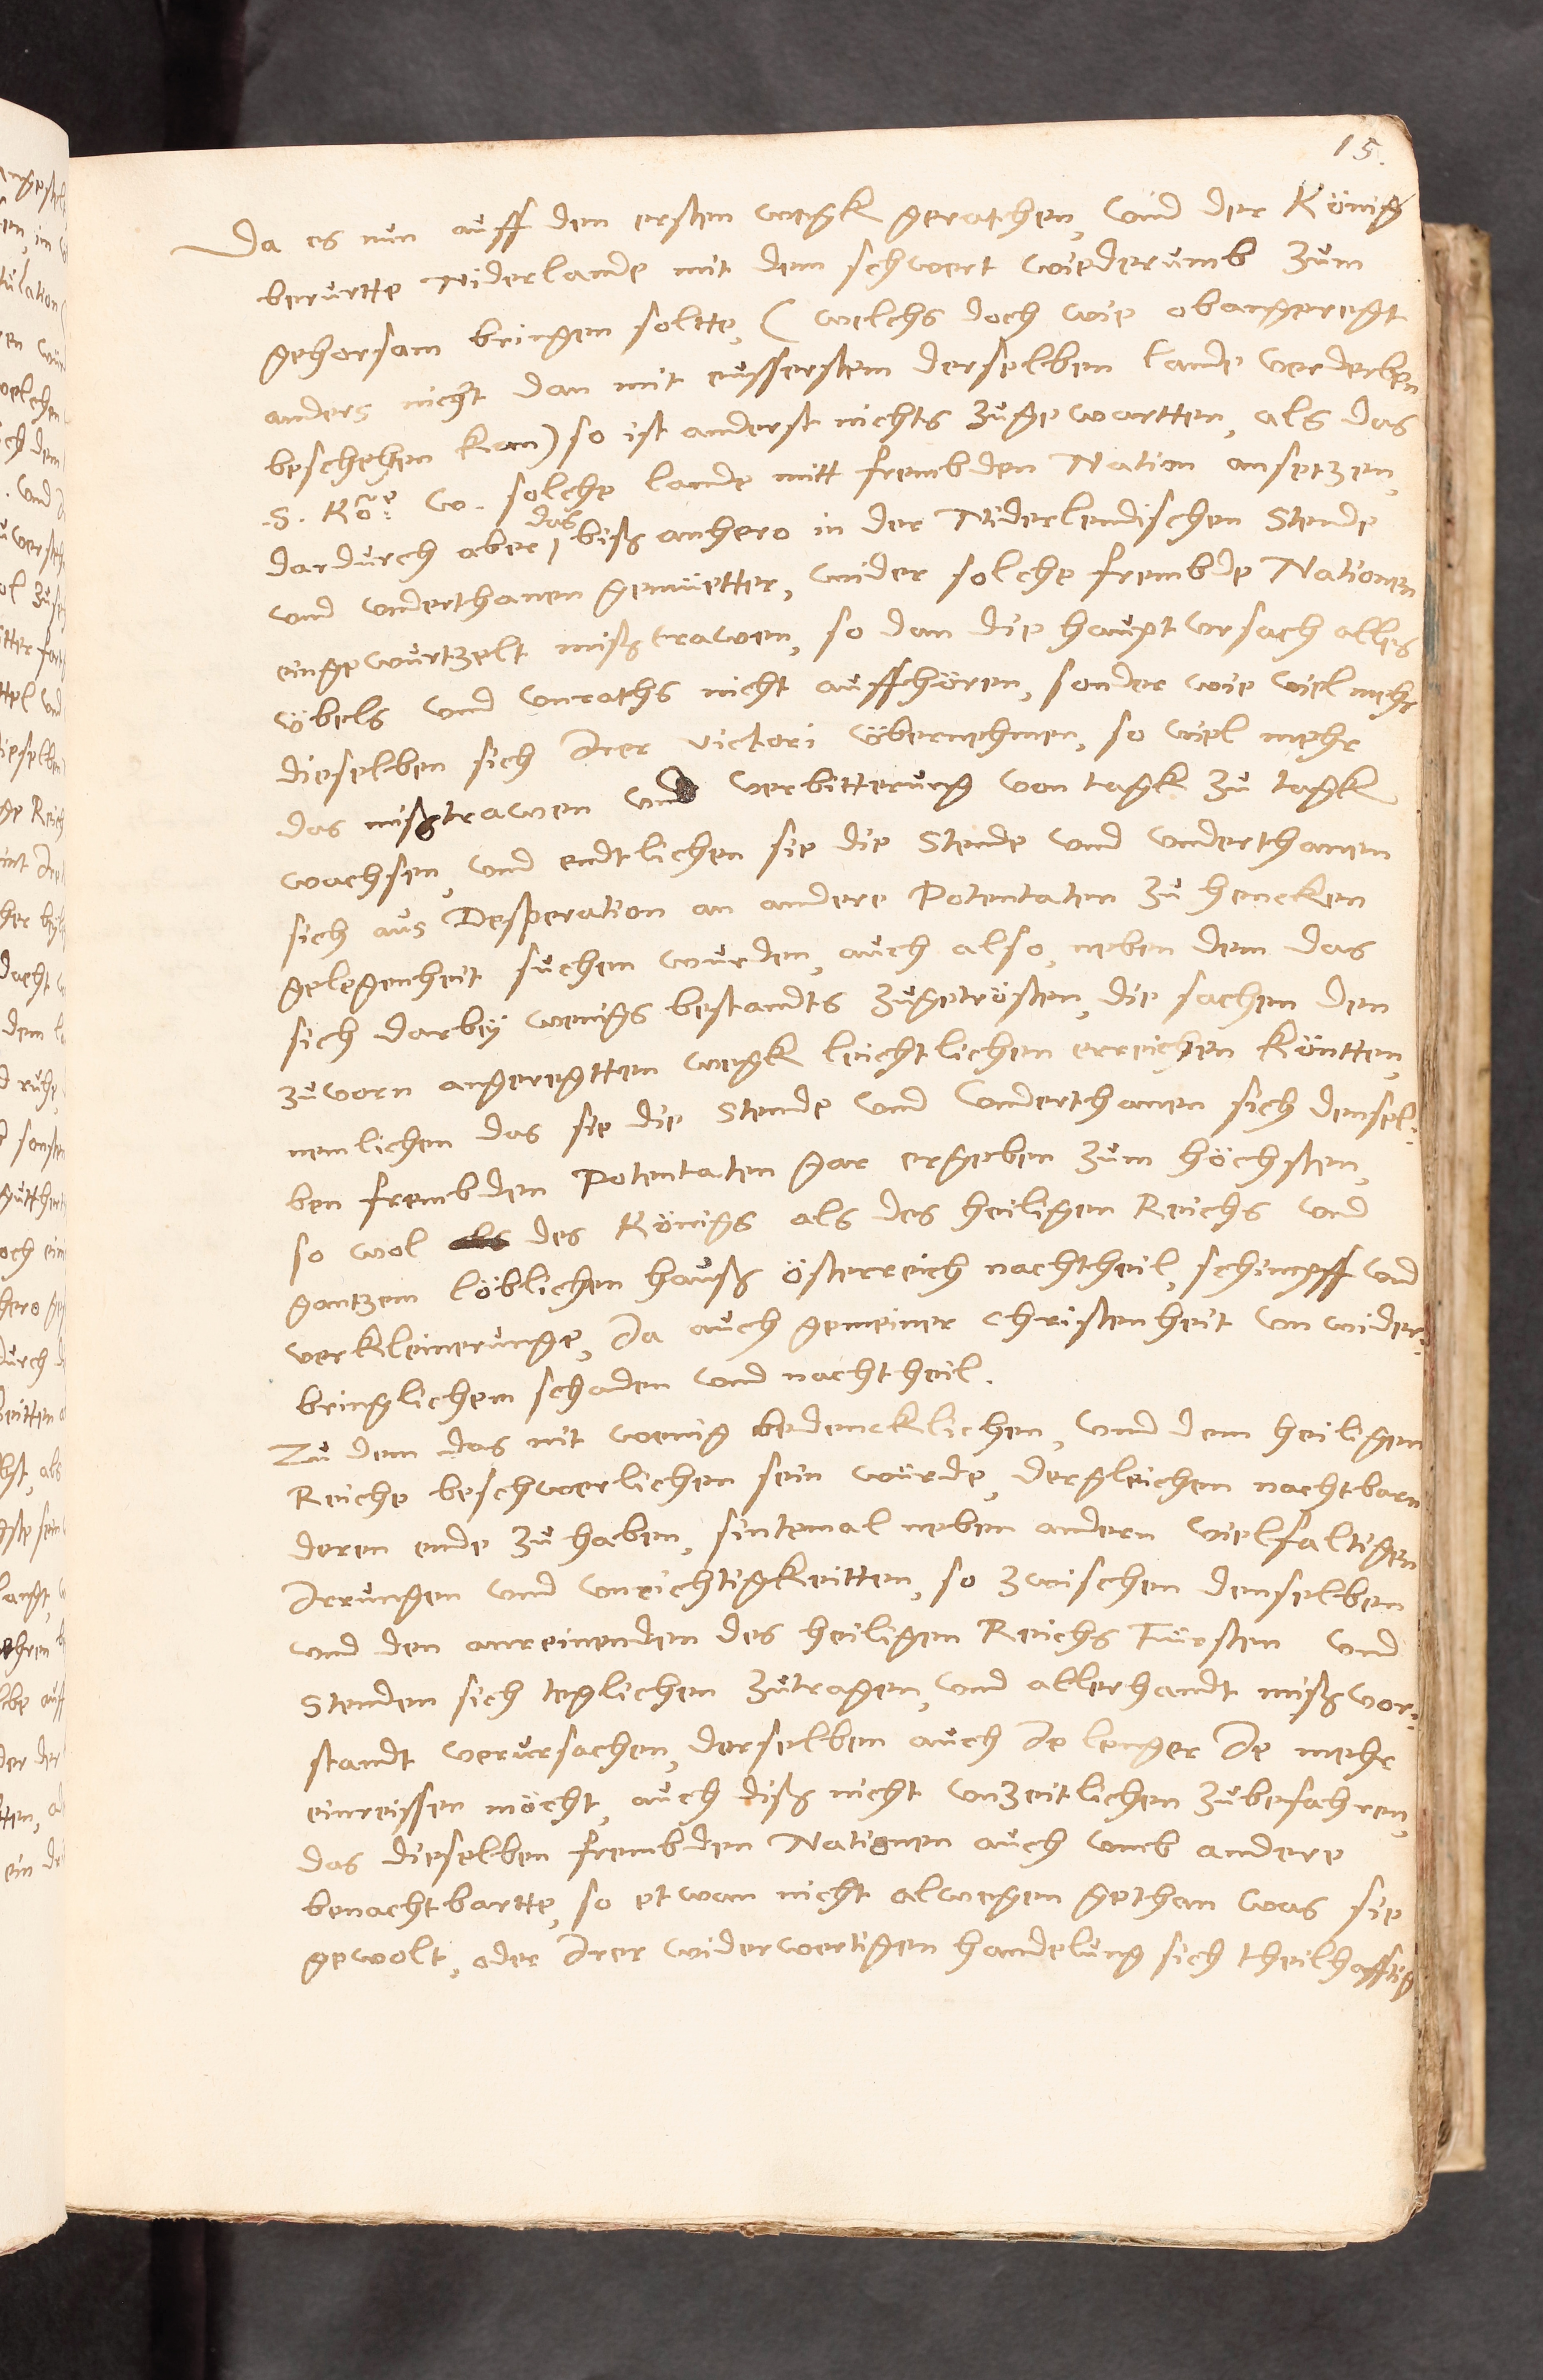 15.
Da es nun auff den ersten wegk gerathen, vnd der König
berurtte Niderlande mit dem schwert wiederumb zum
gehorsam bringen soltte, (welchs doch wie obangeregt
anders nicht dan mit eusserstem derselben lande verderben
beschehen kan) so ist anderst nichts zugewartten, als das
S. Kö: W. solche lande mitt frembden Nation ansetzen,
dardurch aber das biß anhero in der Niderlendischen Stende
vnd vnderthanen gemüetter, wider solche frembde Nationen
eingewurtzelt mißtrawen, so dan die haupt vrsach alles
übels vnd vnraths nicht auffhören, sonder wie viel mehr
dieselben sich Irer victori übernehmen, so viel mehr
das mißtrawen vnd verbitterung von tagk zu tagk
wachsen, vnd endtlichen sie die Stende vnd vnderthanen
sich aus Desperation an andere Potentaten zu hencken
gelegenheit suchen wurden, auch also, neben dem das
sich darbeÿ wenigs bestandts zugetrösten, die sachen den
zuvorn angeregtten wegk leichtlichen erreichen köntten,
nemlichen das sie die Stende vnd Vnderthanen sich densel:
ben frembden Potentaten gar ergeben zum höchsten,
so wol als des Königs als des heiligen Reichs vnd
gantzem löblichen hauß Österreich nachtheil, schimpff vnd
verkleinerunge, Ia auch gemeiner Christenheit vnwider:
bringlichem schaden vnd nachtheil.
Zu dem das nit wenig bedencklichen, vnd dem heiligen
Reiche beschwerlichen sein würde, dergleichen nachtbarn
deren ende zu haben, sintemal neben andern vielfaltigen
Irrungen vnd vnrichtigkeitten, so zwischen denselben
vnd den anreinenden des heiligen Reichs Fürsten vnd
Stenden sich teglichen zutragen, vnd allerhandt mißvor:
standt verursachen, derselben auch Ie lenger Ie mehr
einreissen möcht, auch diß nicht vnzeitlichen zubefahren,
das dieselben frembden Nationen auch vmb andere
benachtbartte, so etwan nicht alwegen gethan was sie
gewolt, oder Irer widerwertigen handelung sich theilhafftig